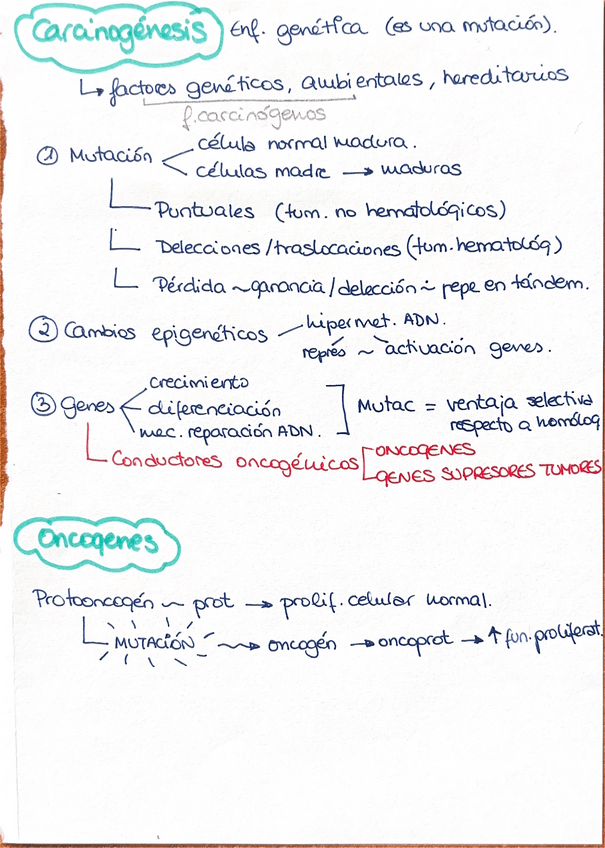 Carcinogénesis Enf. genética (es una mutación).
↳ factores genéticos, ambientales, hereditarios
f. carcinógenos
① Mutación < célula normal madura.
células madre → maduras
Puntuales (tum. no hematológicos)
Delecciones/traslocaciones (tum. hematológ)
Pérdida ~ ganancia/delección ~ repe en tándem.
② Cambios epigenéticos hipermet. ADN.
représ ~ activación genes.
③ Genes crecimiento
diferenciación
mec. reparación ADN.
Mutac = ventaja selectiva
respecto a homólog
Conductores oncogénicos ONCOGENES
GENES SUPRESORES TUMORES
Oncogenes
Protooncogén ~ prot → prolif. celular normal.
MUTACIÓN → oncogén → oncoprot → ↑ fun. proliferat.